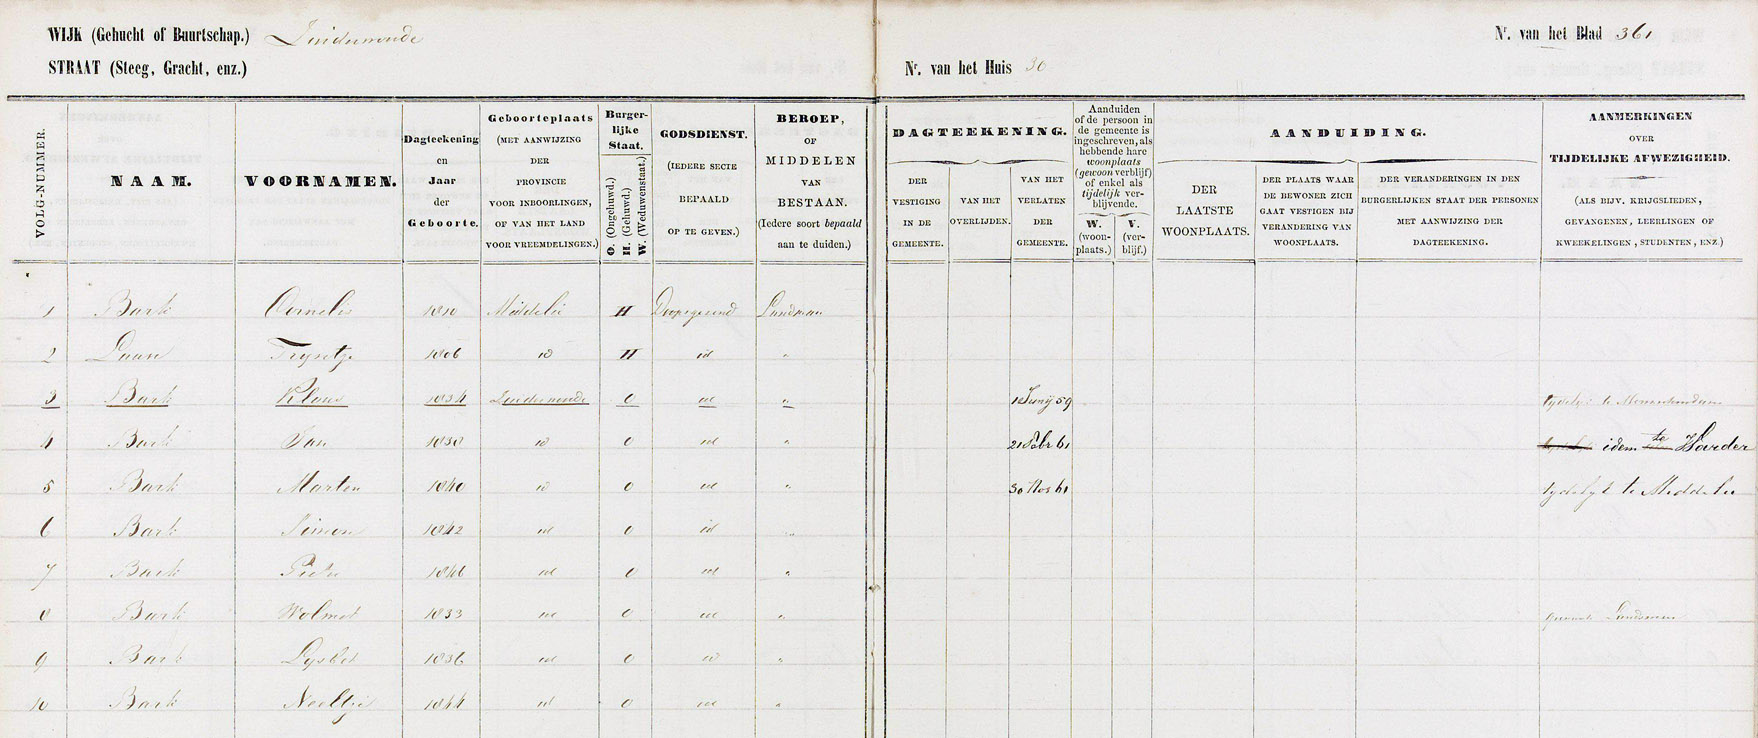 WIJK (Gehucht of Buurtschap.)
Nr. van het Blad 361
STRAAT (Steeg, Gracht, enz.)
Nr. van het Huis 30
VOLG-NUMMER.
NAAM.
VOORNAMEN.
Dagteekening
en
Jaar
der
Geboorte.
Geboorteplaats
(MET AANWIJZING
DER
PROVINCIE
VOOR INBOORLINGEN,
OF VAN HET LAND
VOOR VREEMDELINGEN.)
Burger-
lijke
Staat.
O. (Ongehuwd.)
H. (Gehuwd.)
W. (Weduwenstaat.)
GODSDIENST.
(IEDERE SECTE
BEPAALD
OP TE GEVEN.)
BEROEP,
OF
MIDDELEN
VAN
BESTAAN.
(Iedere soort bepaald
aan te duiden.)
DAGTEEKENING.
DER
VESTIGING
IN DE
GEMEENTE.
VAN HET
OVERLIJDEN.
VAN HET
VERLATEN
DER
GEMEENTE.
Aanduiden
of de persoon in
de gemeente is
ingeschreven, als
hebbende hare
woonplaats
(gewoon verblijf)
of enkel als
tijdelijk ver-
blijvende.
W.
(woon-
plaats.)
V.
(ver-
blijf.)
AANDUIDING.
DER
LAATSTE
WOONPLAATS.
DER PLAATS WAAR
DE BEWONER ZICH
GAAT VESTIGEN BIJ
VERANDERING VAN
WOONPLAATS.
DER VERANDERINGEN IN DEN
BURGERLIJKEN STAAT DER PERSONEN
MET AANWIJZING DER
DAGTEEKENING.
AANMERKINGEN
OVER
TIJDELIJKE AFWEZIGHEID.
(ALS BIJV. KRIJGSLIEDEN,
GEVANGENEN, LEERLINGEN OF
KWEEKELINGEN, STUDENTEN, ENZ.)
1 Bark Cornelis 1810 Middelie H Doopsgezind Landman
2 Daan Trijntje 1806 id H id "
3 Bark Klaas 1834 O id " 1 Junij 59 tydel: te Monnikendam
4 Bark Jan 1838 id O id " 21 Febr 61 idem te Harder
5 Bark Marten 1840 id O id " 30 Nov 61 tydelyk te Middelie
6 Bark Simon 1842 id O id "
7 Bark Pieter 1846 id O id "
8 Bark Wolmet 1833 id O id "
9 Bark Lysbet 1836 id O id "
10 Bark Neeltje 1844 id O id "